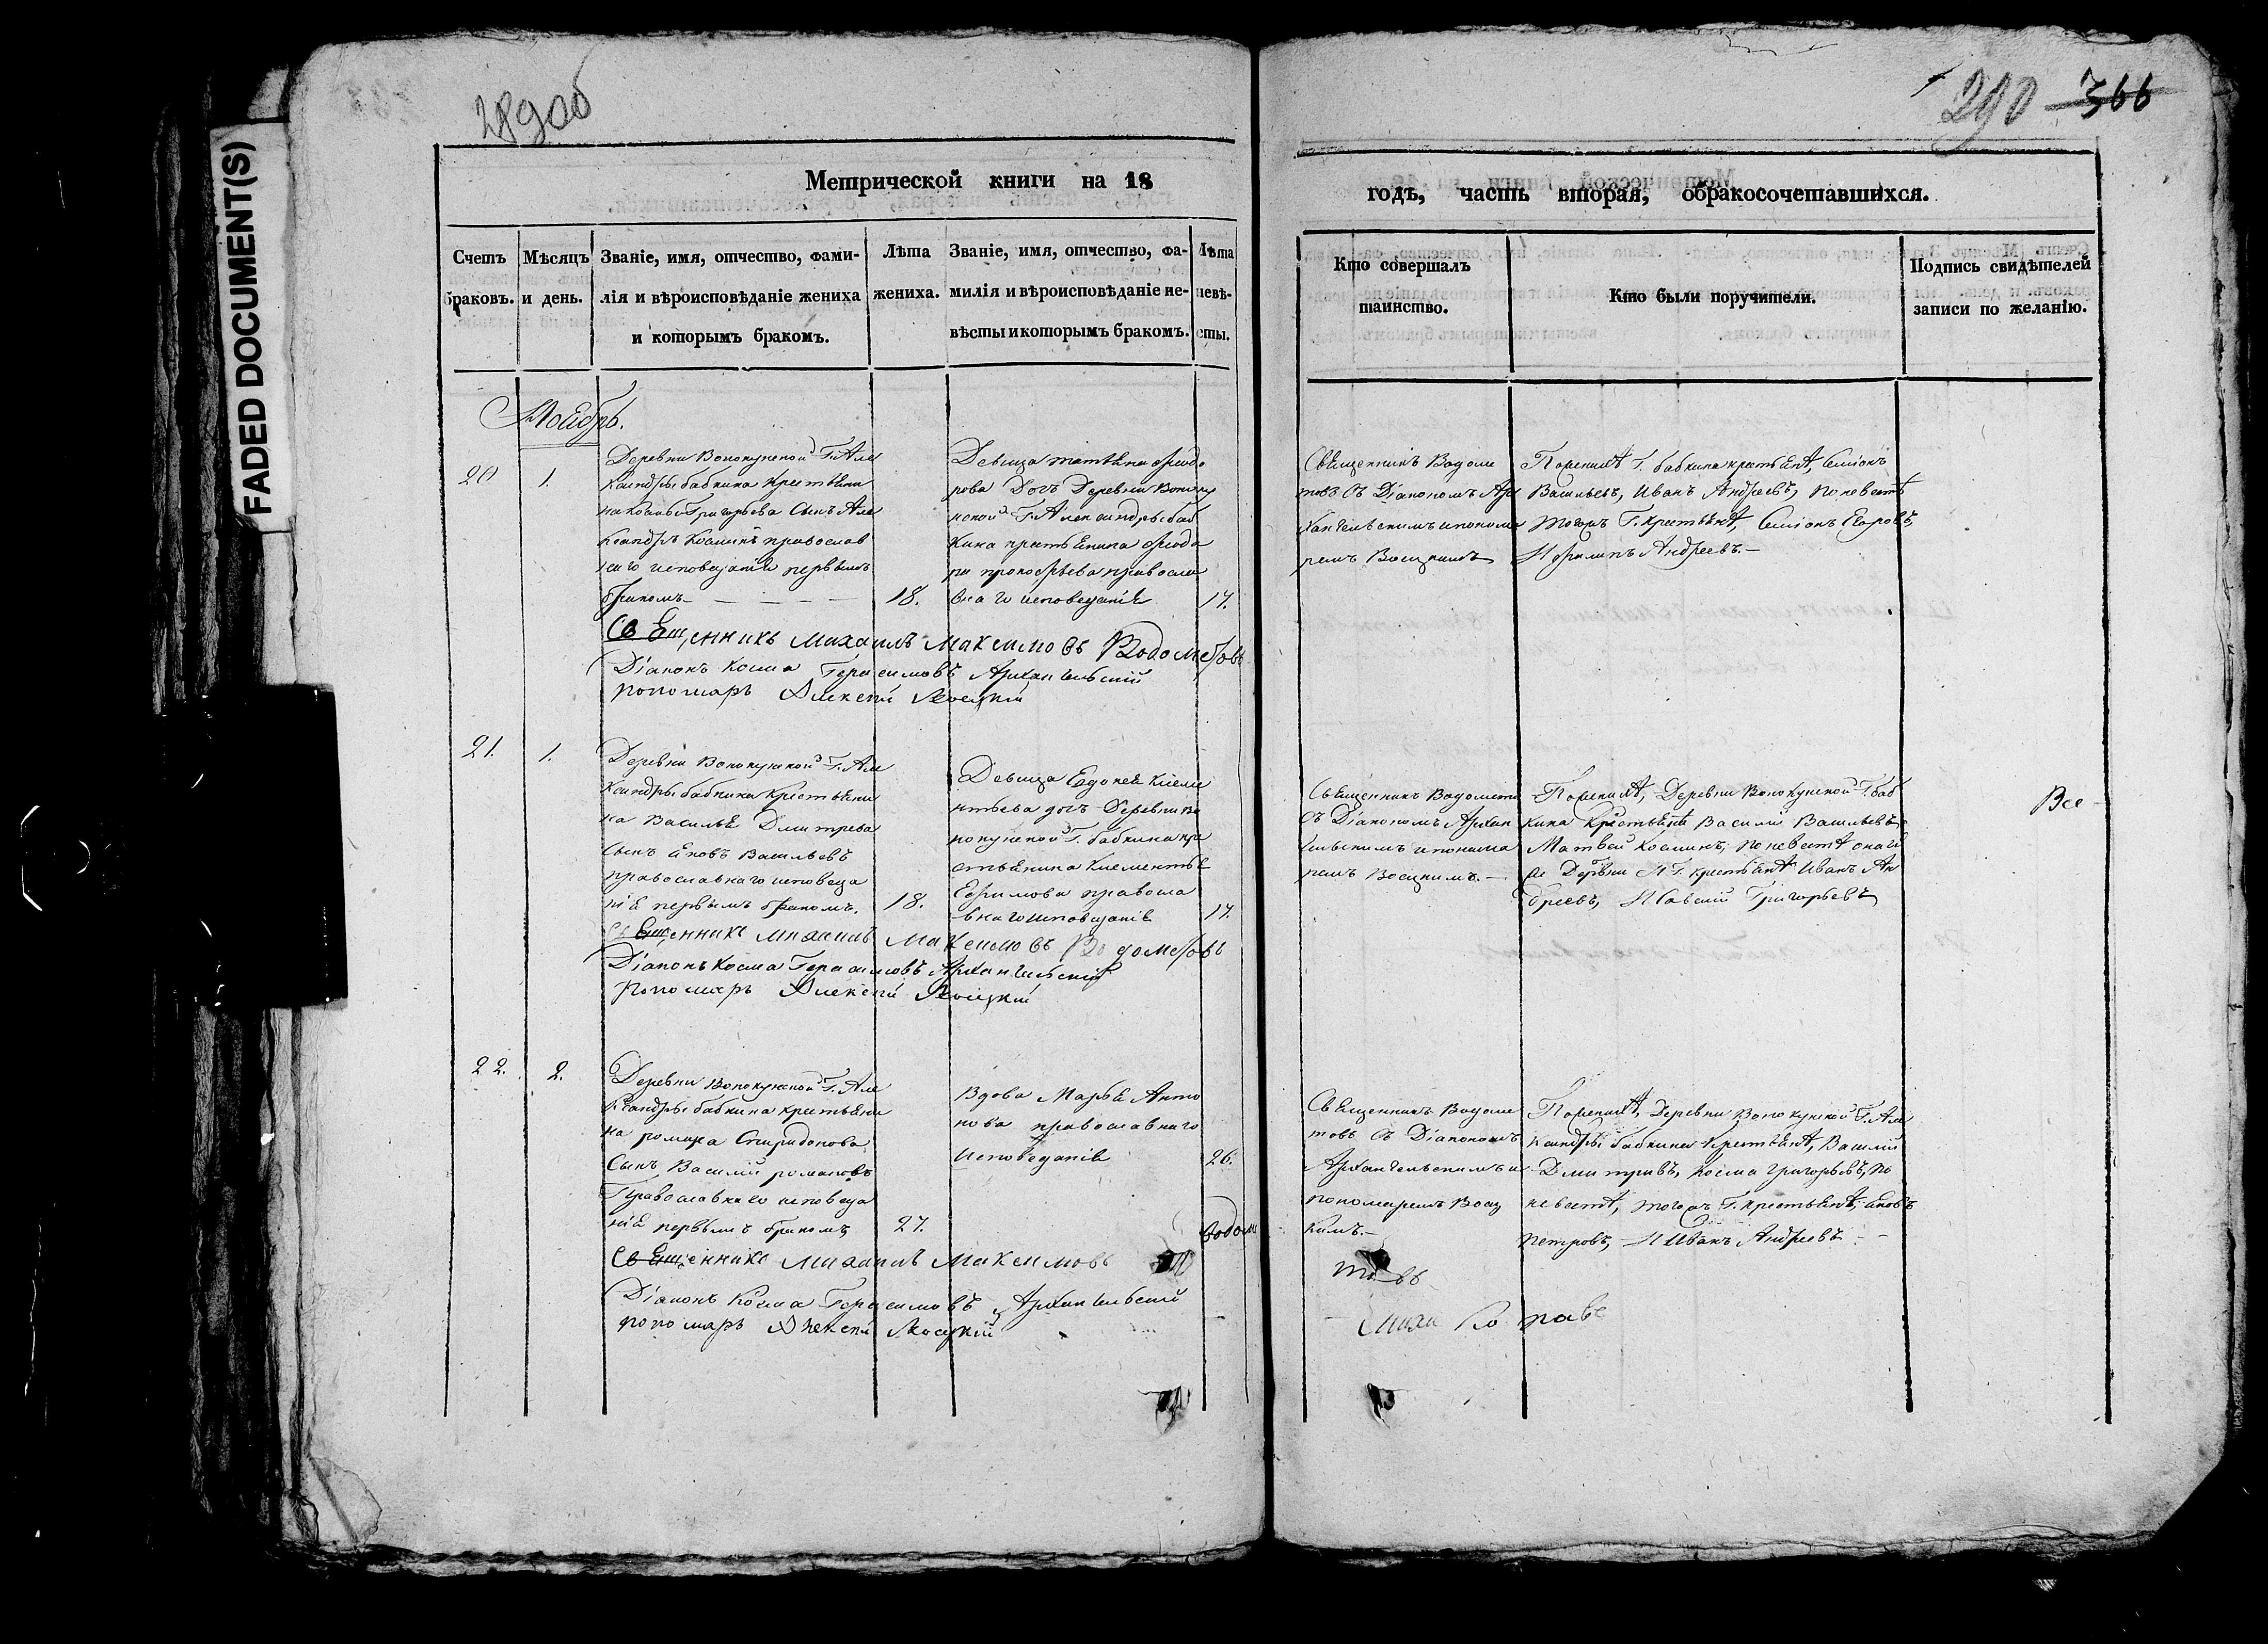 289об
290 366
FADED DOCUMENT(S)
Метрической книги на 18
годъ, часть вторая, обракосочетавшихся.
Счетъ браковъ.
Мѣсяцъ и день.
Званіе, имя, отчество, фами-
лія и вѣроисповѣданіе жениха
и которымъ бракомъ.
Лѣта
жениха.
Званіе, имя, отчество, фа-
милія и вѣроисповѣданіе не-
вѣсты и которымъ бракомъ.
Лѣта
невѣ-
сты.
Кто совершалъ
таинство.
Кто были поручители.
Подпись свидѣтелей
записи по желанію.
Ноябрь.
20
1.
Деревни Вопокунской Г. Але
ксандры бабкина крестьяни
на Космы Григорьева Сынъ Але
ксандръ Косминъ православ
наго исповеданія первымъ
бракомъ
18.
Девица татьяна феодо
рова Дочь Деревни Вопоку
нской Г. Александры баб
кина крестьянина феодо
ра прокофьева правосла
внаго исповеданія
17.
Священникъ Водоме
товъ съ Діакономъ Арх
хангельскимъ и понома
ремъ Восцкимъ
По женихѣ Г. бабкина крестьянѣ, Симіонъ
Васильевъ, Иванъ Андреевъ, по невестѣ
тогожъ Г. крестьянѣ, Симіонъ Егоровъ,
И филипъ Андреевъ.
Священникъ Михаилъ Максимовъ Водометовъ
Діаконъ Косма Герасимовъ Архангельский
пономарь Алексей Восцкій
21.
1.
Деревни Вопокунской Г. Але
ксандры бабкина Крестьяни
на Василья Дмитрева
Сынъ яковъ Васильевъ
православнаго исповеда
нія первымъ бракомъ.
18.
Девица Евдокея Климе
нтьева дочь Деревни Во
покунской Г. бабкина кре
стьянина Климентья
Ефимова правосла
внаго исповеданія
17.
Священникъ Водомето
съ Діакономъ Архан
гельскимъ и понома
ремъ Восцкимъ.
По женихѣ, Деревни Вопокунской Г. баб
кина Крестьянѣ Василий Васильевъ,
Матвей Косминъ, по невестѣ онаго
же Деревни И Г. крестьянѣ Иванъ Ан
дреевъ, И Савелий Григорьевъ
Все
Священникъ Михаилъ Максимовъ Водометовъ
Діаконъ Косма Герасимовъ Архангельский
пономарь Алексей Восцкій
22.
2.
Деревни Вопокунской Г. Але
ксандры бабкина крестьяни
на романа Спиридонова
Сынъ Василий романовъ
Православнаго исповеда
нія первымъ бракомъ
27.
Вдова Марья Анто
нова православнаго
Исповеданія
26.
Священникъ Водоме
товъ съ Діакономъ
Архангельскимъ и
пономаремъ Восц
кимъ.
По женихѣ, Деревни Вопокунской Г. Але
ксандры бабкина Крестьянѣ, Василий
Дмитривъ, Косма григорьевъ, по
невестѣ, тогожъ Г. крестьянѣ, яковъ
петровъ, И Иванъ Андреевъ
Священникъ Михаилъ Максимовъ Водоме
товъ
Діаконъ Косма Герасимовъ Архангельский
пономарь Алексей Восцкій